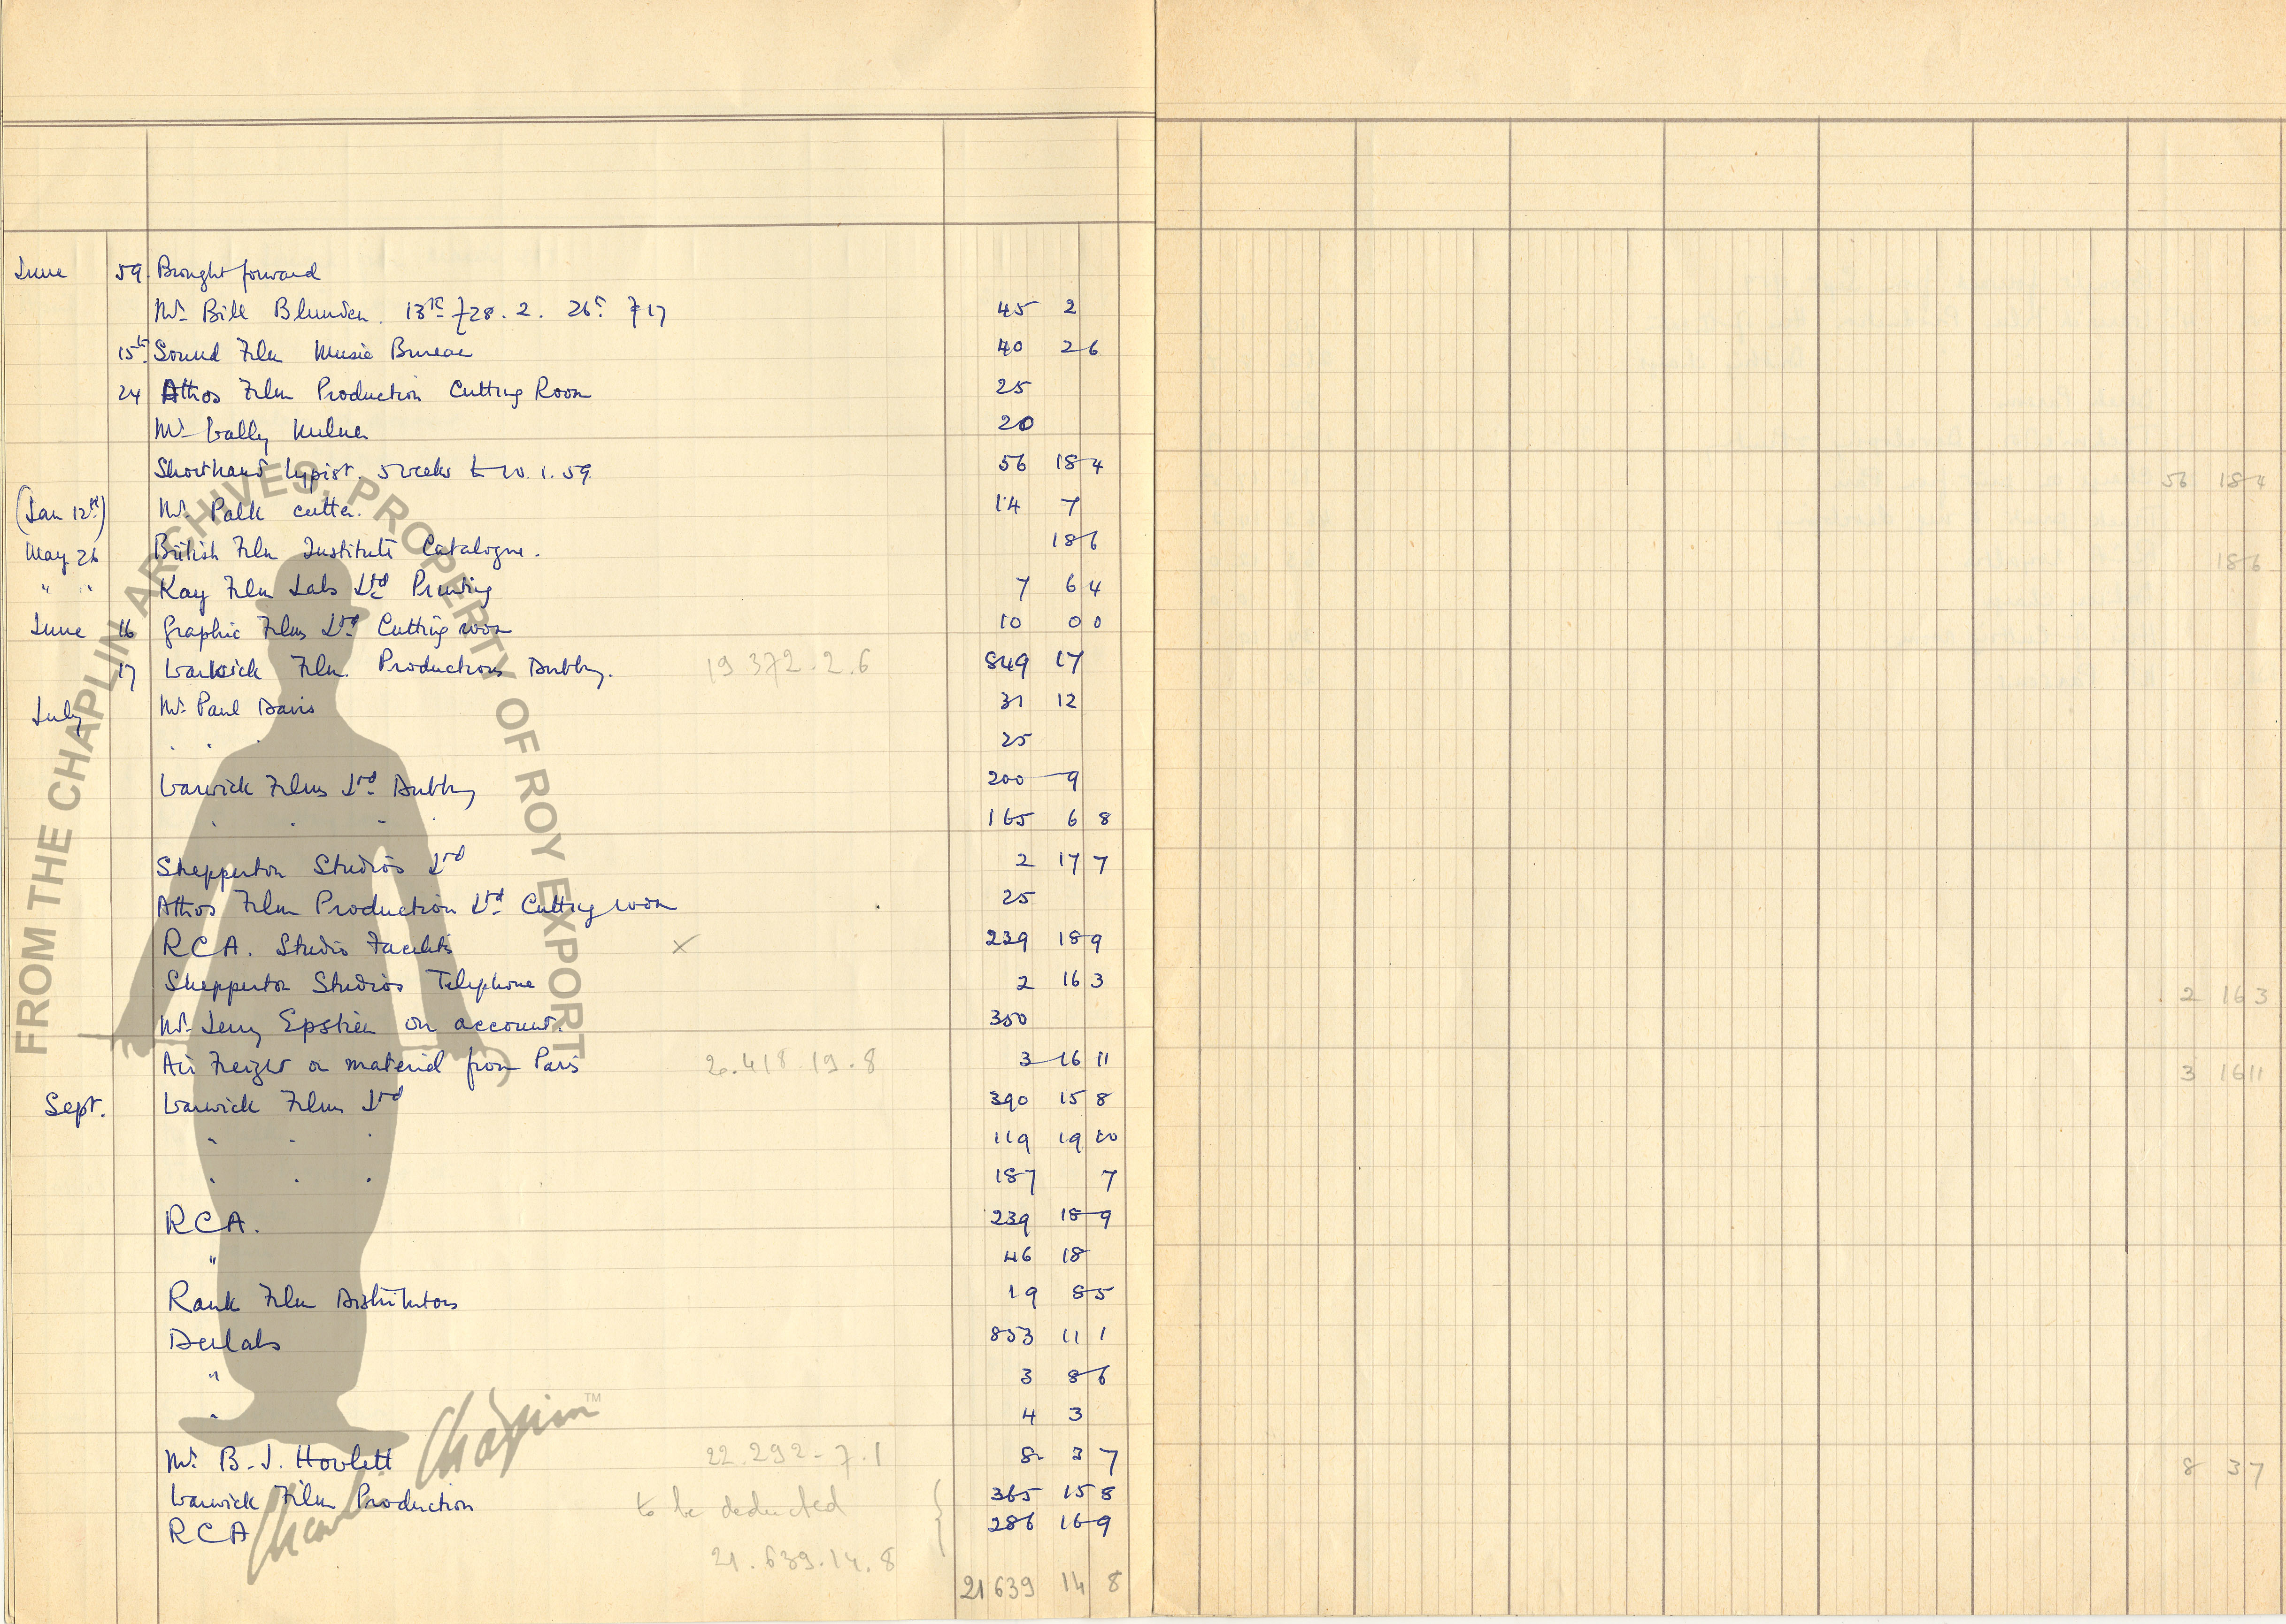 June 59 Brought forward
Mr Bill Blunden. 13th £28.2. 26th £17 45 2
15th Sound Film Music Bureau 40 2 6
24 Athos Film Production Cutting Room 25
Mr Wally Milner 20
Shorthand typist. 5 weeks to 10.1.59. 56 18 4 56 18 4
(Jan 12th) Mr Palk cutter. 14 7
May 26 British Film Institute Catalogue. 18 6 18 6
" " Kay Film Labs Ltd Printing 7 6 4
June 16 Graphic Films Ltd Cutting room 10 0 0
17 Warwick Film Productions Dubbing. 19 372.2.6 849 17
July Mr Paul Davis 31 12
" " 25
Warwick Films Ltd Dubbing 200 – 9
" " " " 165 6 8
Shepperton Studios Ltd 2 17 7
Athos Film Production Ltd Cutting room 25
RCA. Studio Facilities × 239 18 9
Shepperton Studios Telephone 2 16 3 2 16 3
Mr Jerry Epstien on account. 350
Air Freight on material from Paris 20.418.19.8 3 16 11 3 16 11
Sept. Warwick Films Ltd 390 15 8
" " " 119 19 10
" " " 187 7
RCA. 239 18 9
" 46 18
Rank Film Distributors 19 8 5
Denlabs 853 11 1
" 3 8 6
" 4 3
Mr B.J. Howlett 22.292-7.1 8 3 7 8 3 7
Warwick Film Production to be deducted { 365 15 8
RCA 286 16 9
21.639.14.8
21 639 14 8
FROM THE CHAPLIN ARCHIVES, PROPERTY OF ROY EXPORT
Charles Chaplin ™